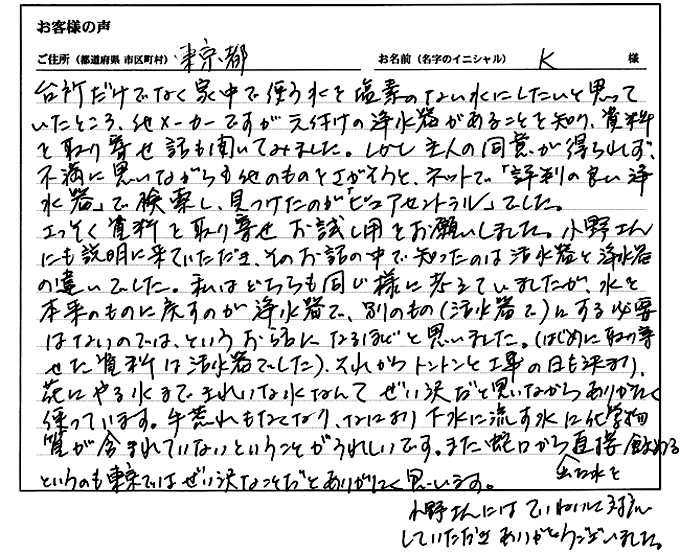 お客様の声
ご住所（都道府県 市区町村） 東京都 お名前（名字のイニシャル） K 様
台所だけでなく家中で使う水を塩素のない水にしたいと思って
いたところ、他メーカーですが元付けの浄水器があることを知り、資料
を取り寄せ話も聞いてみました。しかし主人の同意が得られず、
不満に思いながらも他のものをさがそうと、ネットで「評判の良い浄
水器」で検索し、見つけたのが「ピュアセントラル」でした。
さっそく資料を取り寄せお試し用をお願いしました。小野さん
にも説明に来ていただき、そのお話の中で知ったのは活水器と浄水器
の違いでした。私はどちらも同じ様に考えていましたが、水を
本来のものに戻すのが浄水器で、別のもの（活水器で）にする必要
はないのでは、というお話になるほどと思いました。（はじめに取り寄
せた資料は活水器でした）、それからトントンと工事の日も決まり、
花にやる水まできれいな水なんてぜい沢だと思いながらありがたく
使っています。手荒れもなくなり、なにより下水に流す水に化学物
質が含まれていないということがうれしいです。また蛇口から直接飲める
出る水を
というのも東京ではぜい沢なことだとありがたく思います。
小野さんにはていねいに対応
していただきありがとうございました。